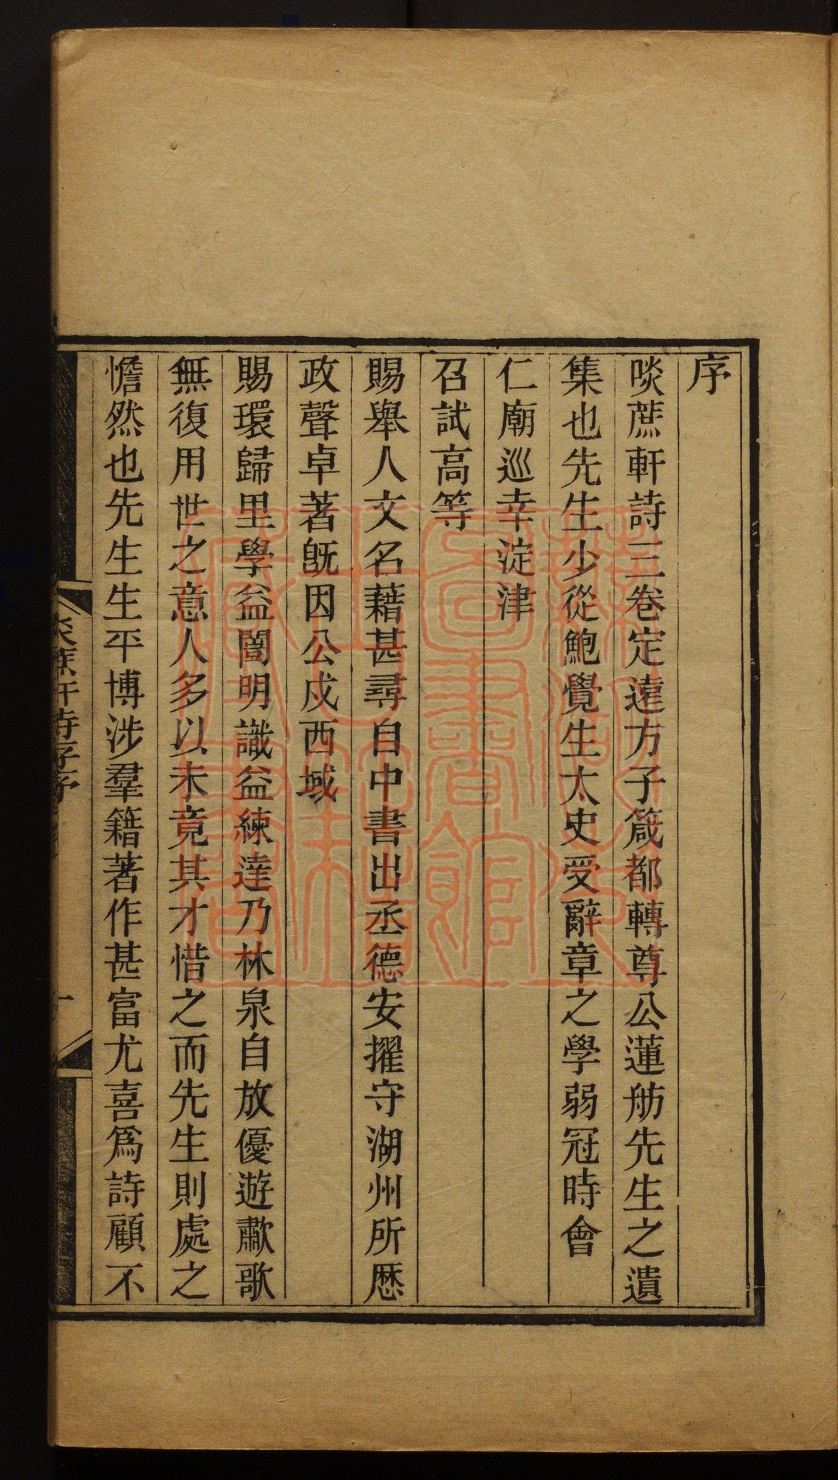 序
啖蔗軒詩三卷定遠方子箴都轉尊公蓮舫先生之遺
集也先生少從鮑覺生太史受辭章之學弱冠時會
仁廟巡幸淀津
召試高等
賜舉人文名藉甚尋自中書出丞德安擢守湖州所歷
政聲卓著旣因公戍西域
賜環歸里學益闇明識益練達乃林泉自放優遊歗歌
無復用世之意人多以未竟其才惜之而先生則處之
憺然也先生生平博涉羣籍著作甚富尤喜爲詩顧不
啖蔗軒詩序
一